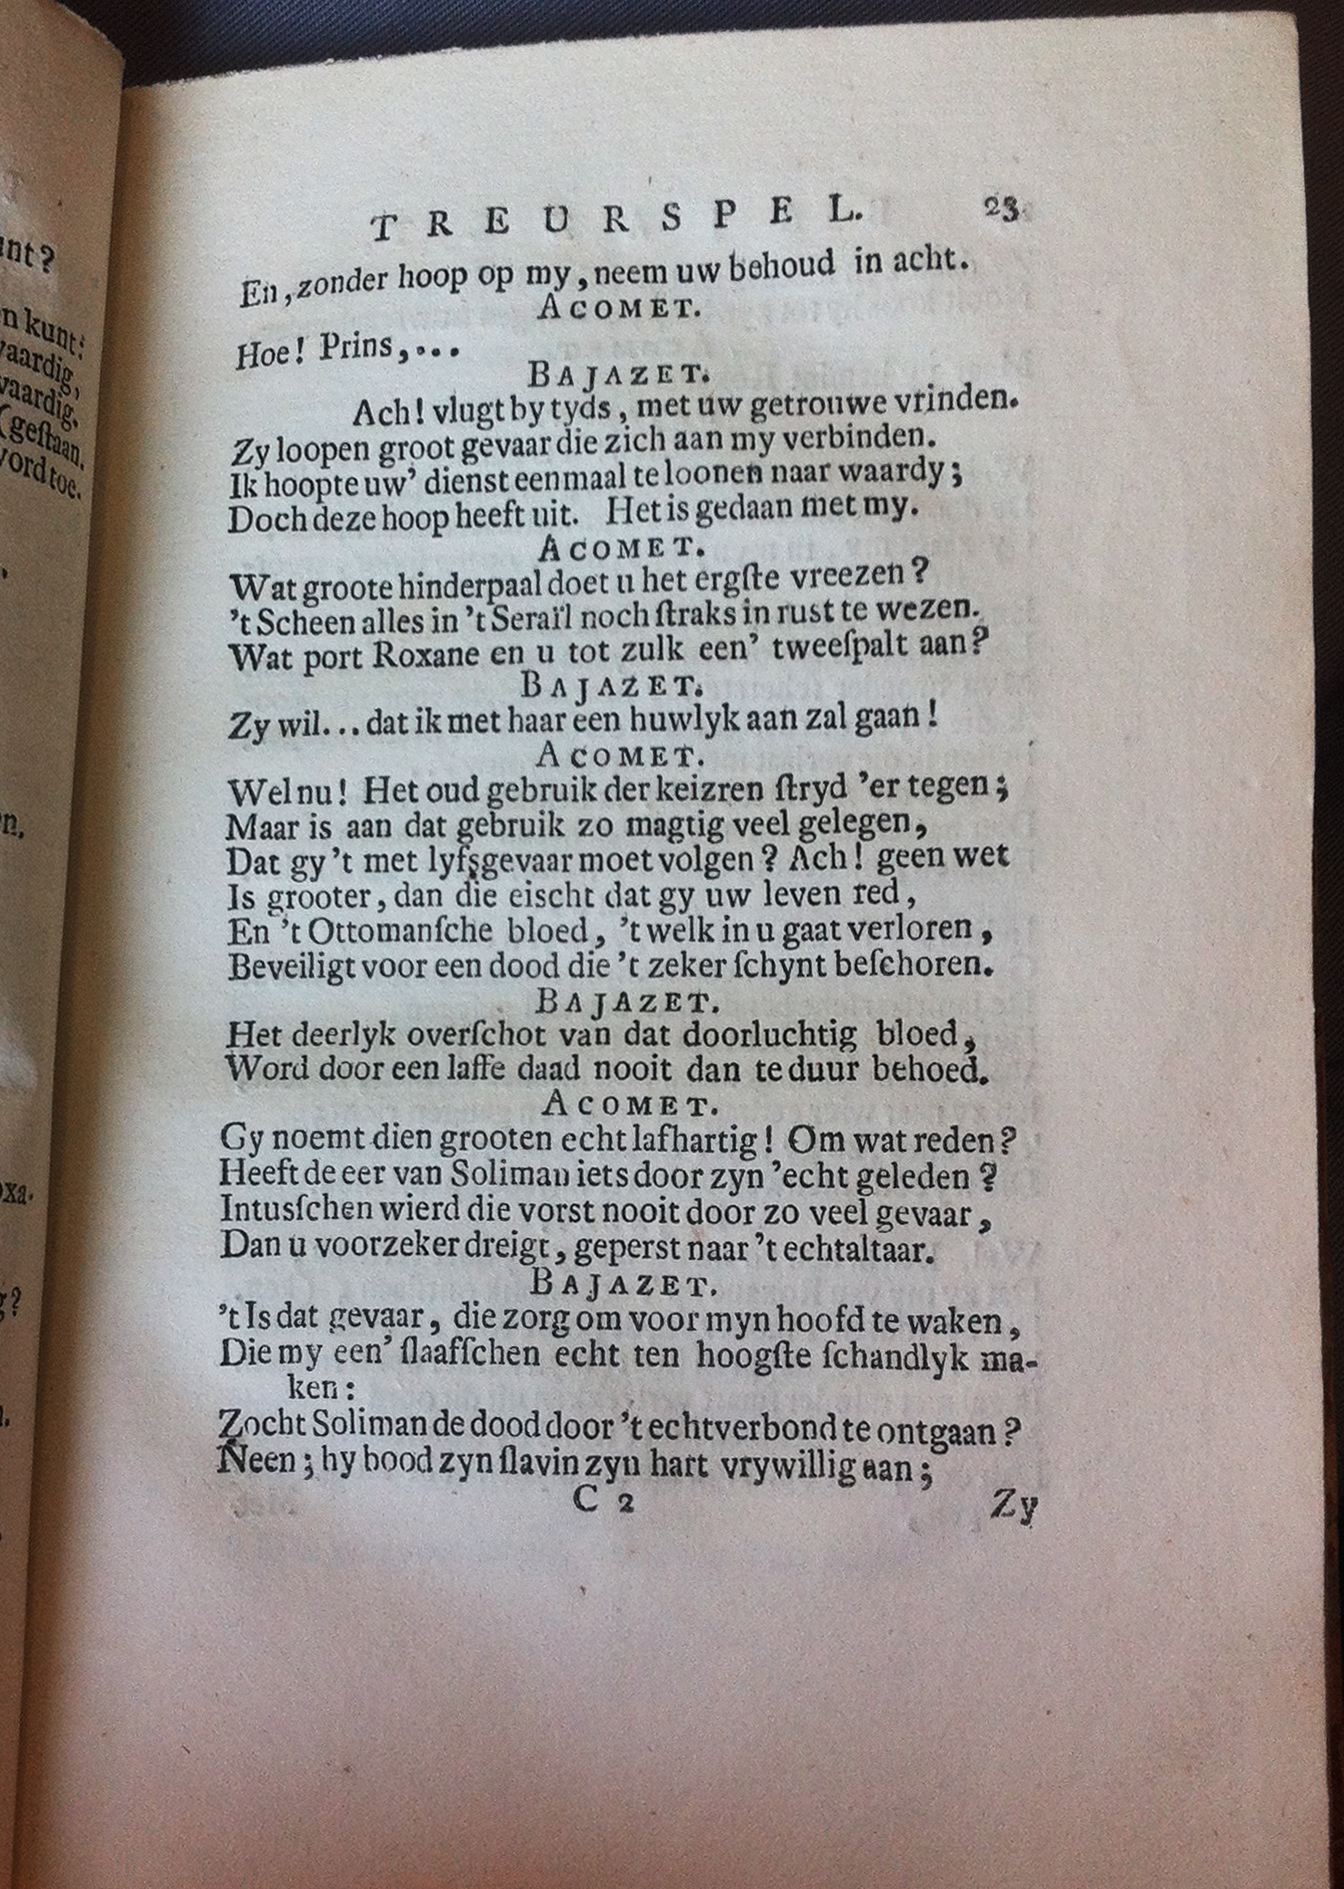 unt?
n kunt:
vaardig,
waardig.
(geſtaan.
word toe.
n.
oxa-
g?
TREURSPEL. 23
En, zonder hoop op my, neem uw behoud in acht.
ACOMET.
Hoe! Prins,...
BAJAZET.
Ach! vlugt by tyds, met uw getrouwe vrinden.
Zy loopen groot gevaar die zich aan my verbinden.
Ik hoopte uw' dienst eenmaal te loonen naar waardy;
Doch deze hoop heeft uit. Het is gedaan met my.
ACOMET.
Wat groote hinderpaal doet u het ergſte vreezen?
't Scheen alles in 't Seraïl noch ſtraks in rust te wezen.
Wat port Roxane en u tot zulk een' tweeſpalt aan?
BAJAZET.
Zy wil... dat ik met haar een huwlyk aan zal gaan!
ACOMET.
Wel nu! Het oud gebruik der keizren ſtryd 'er tegen;
Maar is aan dat gebruik zo magtig veel gelegen,
Dat gy 't met lyfsgevaar moet volgen? Ach! geen wet
Is grooter, dan die eischt dat gy uw leven red,
En 't Ottomanſche bloed, 't welk in u gaat verloren,
Beveiligt voor een dood die 't zeker ſchynt beſchoren.
BAJAZET.
Het deerlyk overſchot van dat doorluchtig bloed,
Word door een laffe daad nooit dan te duur behoed.
ACOMET.
Gy noemt dien grooten echt lafhartig! Om wat reden?
Heeft de eer van Soliman iets door zyn 'echt geleden?
Intusſchen wierd die vorst nooit door zo veel gevaar,
Dan u voorzeker dreigt, geperst naar 't echtaltaar.
BAJAZET.
't Is dat gevaar, die zorg om voor myn hoofd te waken,
Die my een' ſlaafſchen echt ten hoogſte ſchandlyk ma-
ken:
Zocht Soliman de dood door 't echtverbond te ontgaan?
Neen; hy bood zyn ſlavin zyn hart vrywillig aan;
C 2 Zy